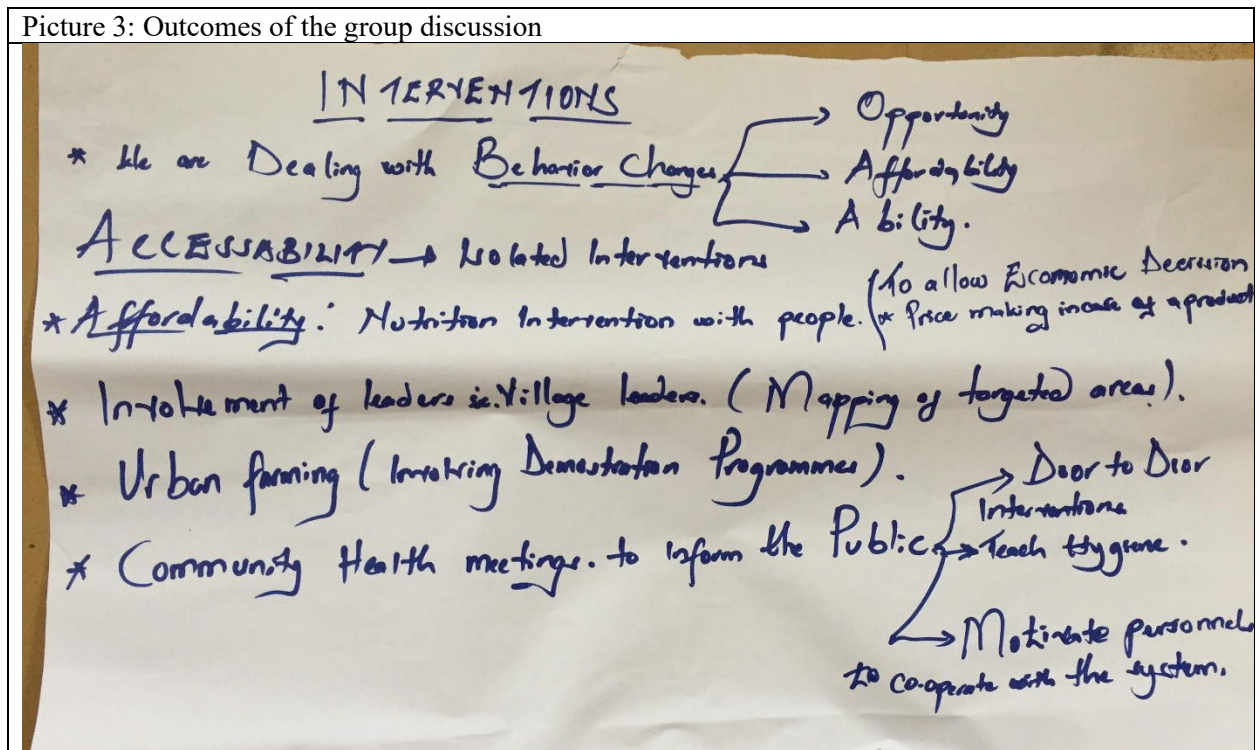 Picture 3: Outcomes of the group discussion
INTERVENTIONS
* We are Dealing with Behavior Changes → Opportunity
→ Affordability
→ Ability.
ACCESSABILITY → Isolated Interventions
* Affordability: Nutrition Intervention with people. (To allow Economic Decision
* Price making incase of a product
* Involvement of leaders ie. Village leaders. (Mapping of targeted areas).
* Urban farming (Involving Demostration Programmes).
* Community Health meetings. to inform the Public → Door to Door
Interventions
→ Teach Hygiene.
→ Motivate personnel
to co-operate with the system.